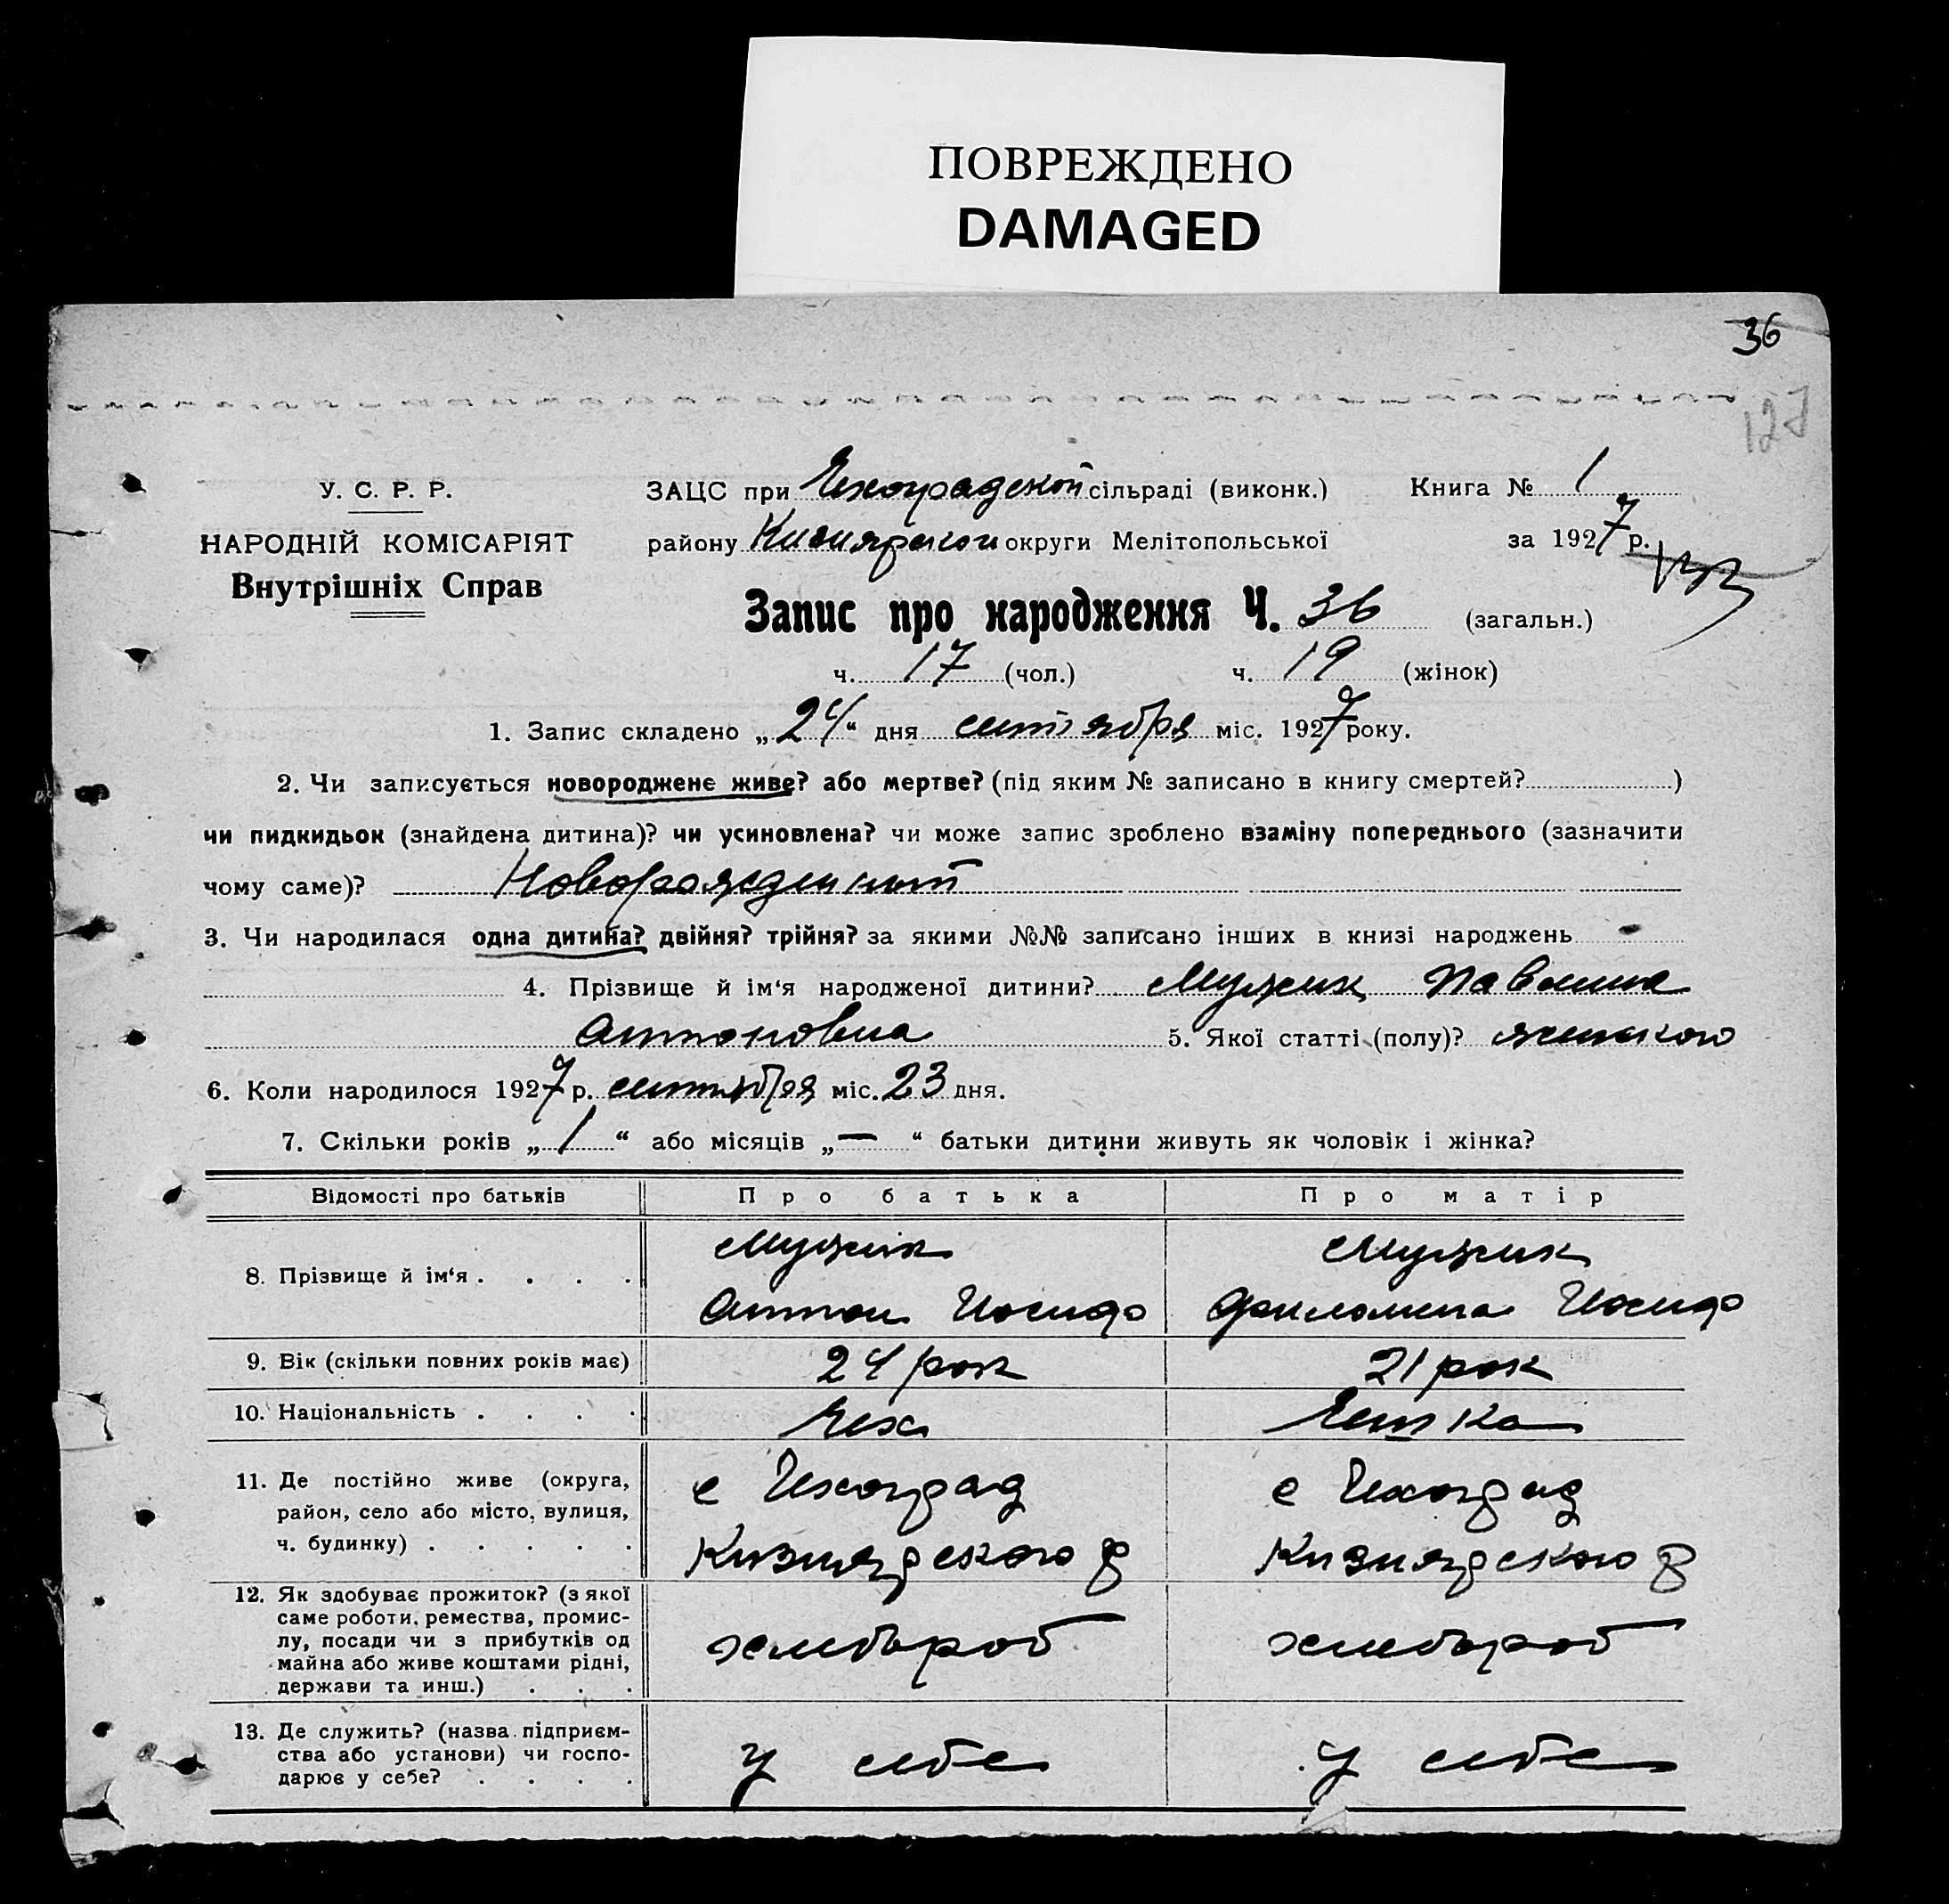 ПОВРЕЖДЕНО
DAMAGED
36
127
У. С. Р. Р.
НАРОДНІЙ КОМІСАРІЯТ
Внутрішніх Справ
ЗАЦС при Чехоградской сільраді (виконк.) Книга № 1
району Кизиярской округи Мелітопольської за 1927 р.
Запис про народження Ч. 36 (загальн.)
ч. 17 (чол.) ч. 19 (жінок)
1. Запис складено „24“ дня сентября міс. 1927 року.
2. Чи записується новороджене живе? або мертве? (під яким № записано в книгу смертей? )
чи пидкидьок (знайдена дитина)? чи усиновлена? чи може запис зроблено взаміну попереднього (зазначити
чому саме)? Новорожденный
3. Чи народилася одна дитина? двійня? трійня? за якими №№ записано інших в книзі народжень -
4. Прізвище й ім‘я народженої дитини? Мужик Павлина
Антоновна 5. Якої статті (полу)? женского
6. Коли народилося 1927 р. сентября міс. 23 дня.
7. Скільки років „1“ або місяців „—“ батьки дитини живуть як чоловік і жінка?
Відомості про батьків Про батька Про матір
8. Прізвище й ім‘я . . . . Мужик Мужик
Антон Иосиф Филомена Иосиф
9. Вік (скільки повних років має) 24 рок 21 рок
10. Національність . . . . Чех Чешка
11. Де постійно живе (округа, район, село або місто, вулиця, ч. будинку) . . . . . с Чехоград с Чехоград
Кизиярского р Кизиярского р
12. Як здобуває прожиток? (з якої
саме роботи, ремества, промис-
лу, посади чи з прибутків од
майна або живе коштами рідні,
держави та инш.) . . . хлібороб хлібороб
13. Де служить? (назва підприєм-
ства або установи) чи госпо-
дарює у себе? . . . . у себе у себе